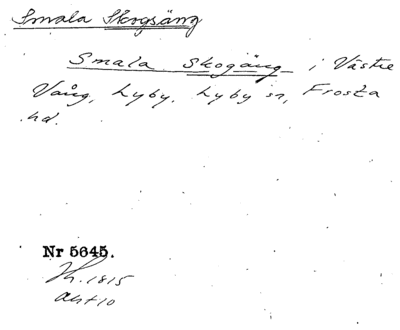 Smala Skogsäng
Smala Skogäng i Västre
Vång, Lyby, Lyby sn, Frosta
hd.
Nr 5645.
1815
akt 10